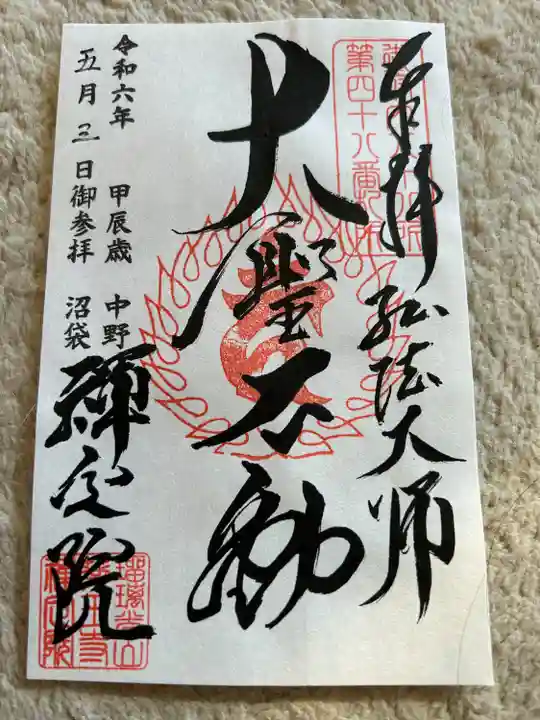 奉拝 弘法大師
第四十八番札所
大聖不動
令和六年 甲辰歳 中野
五月三日御参拝 沼袋
禅定院
瑠璃光山